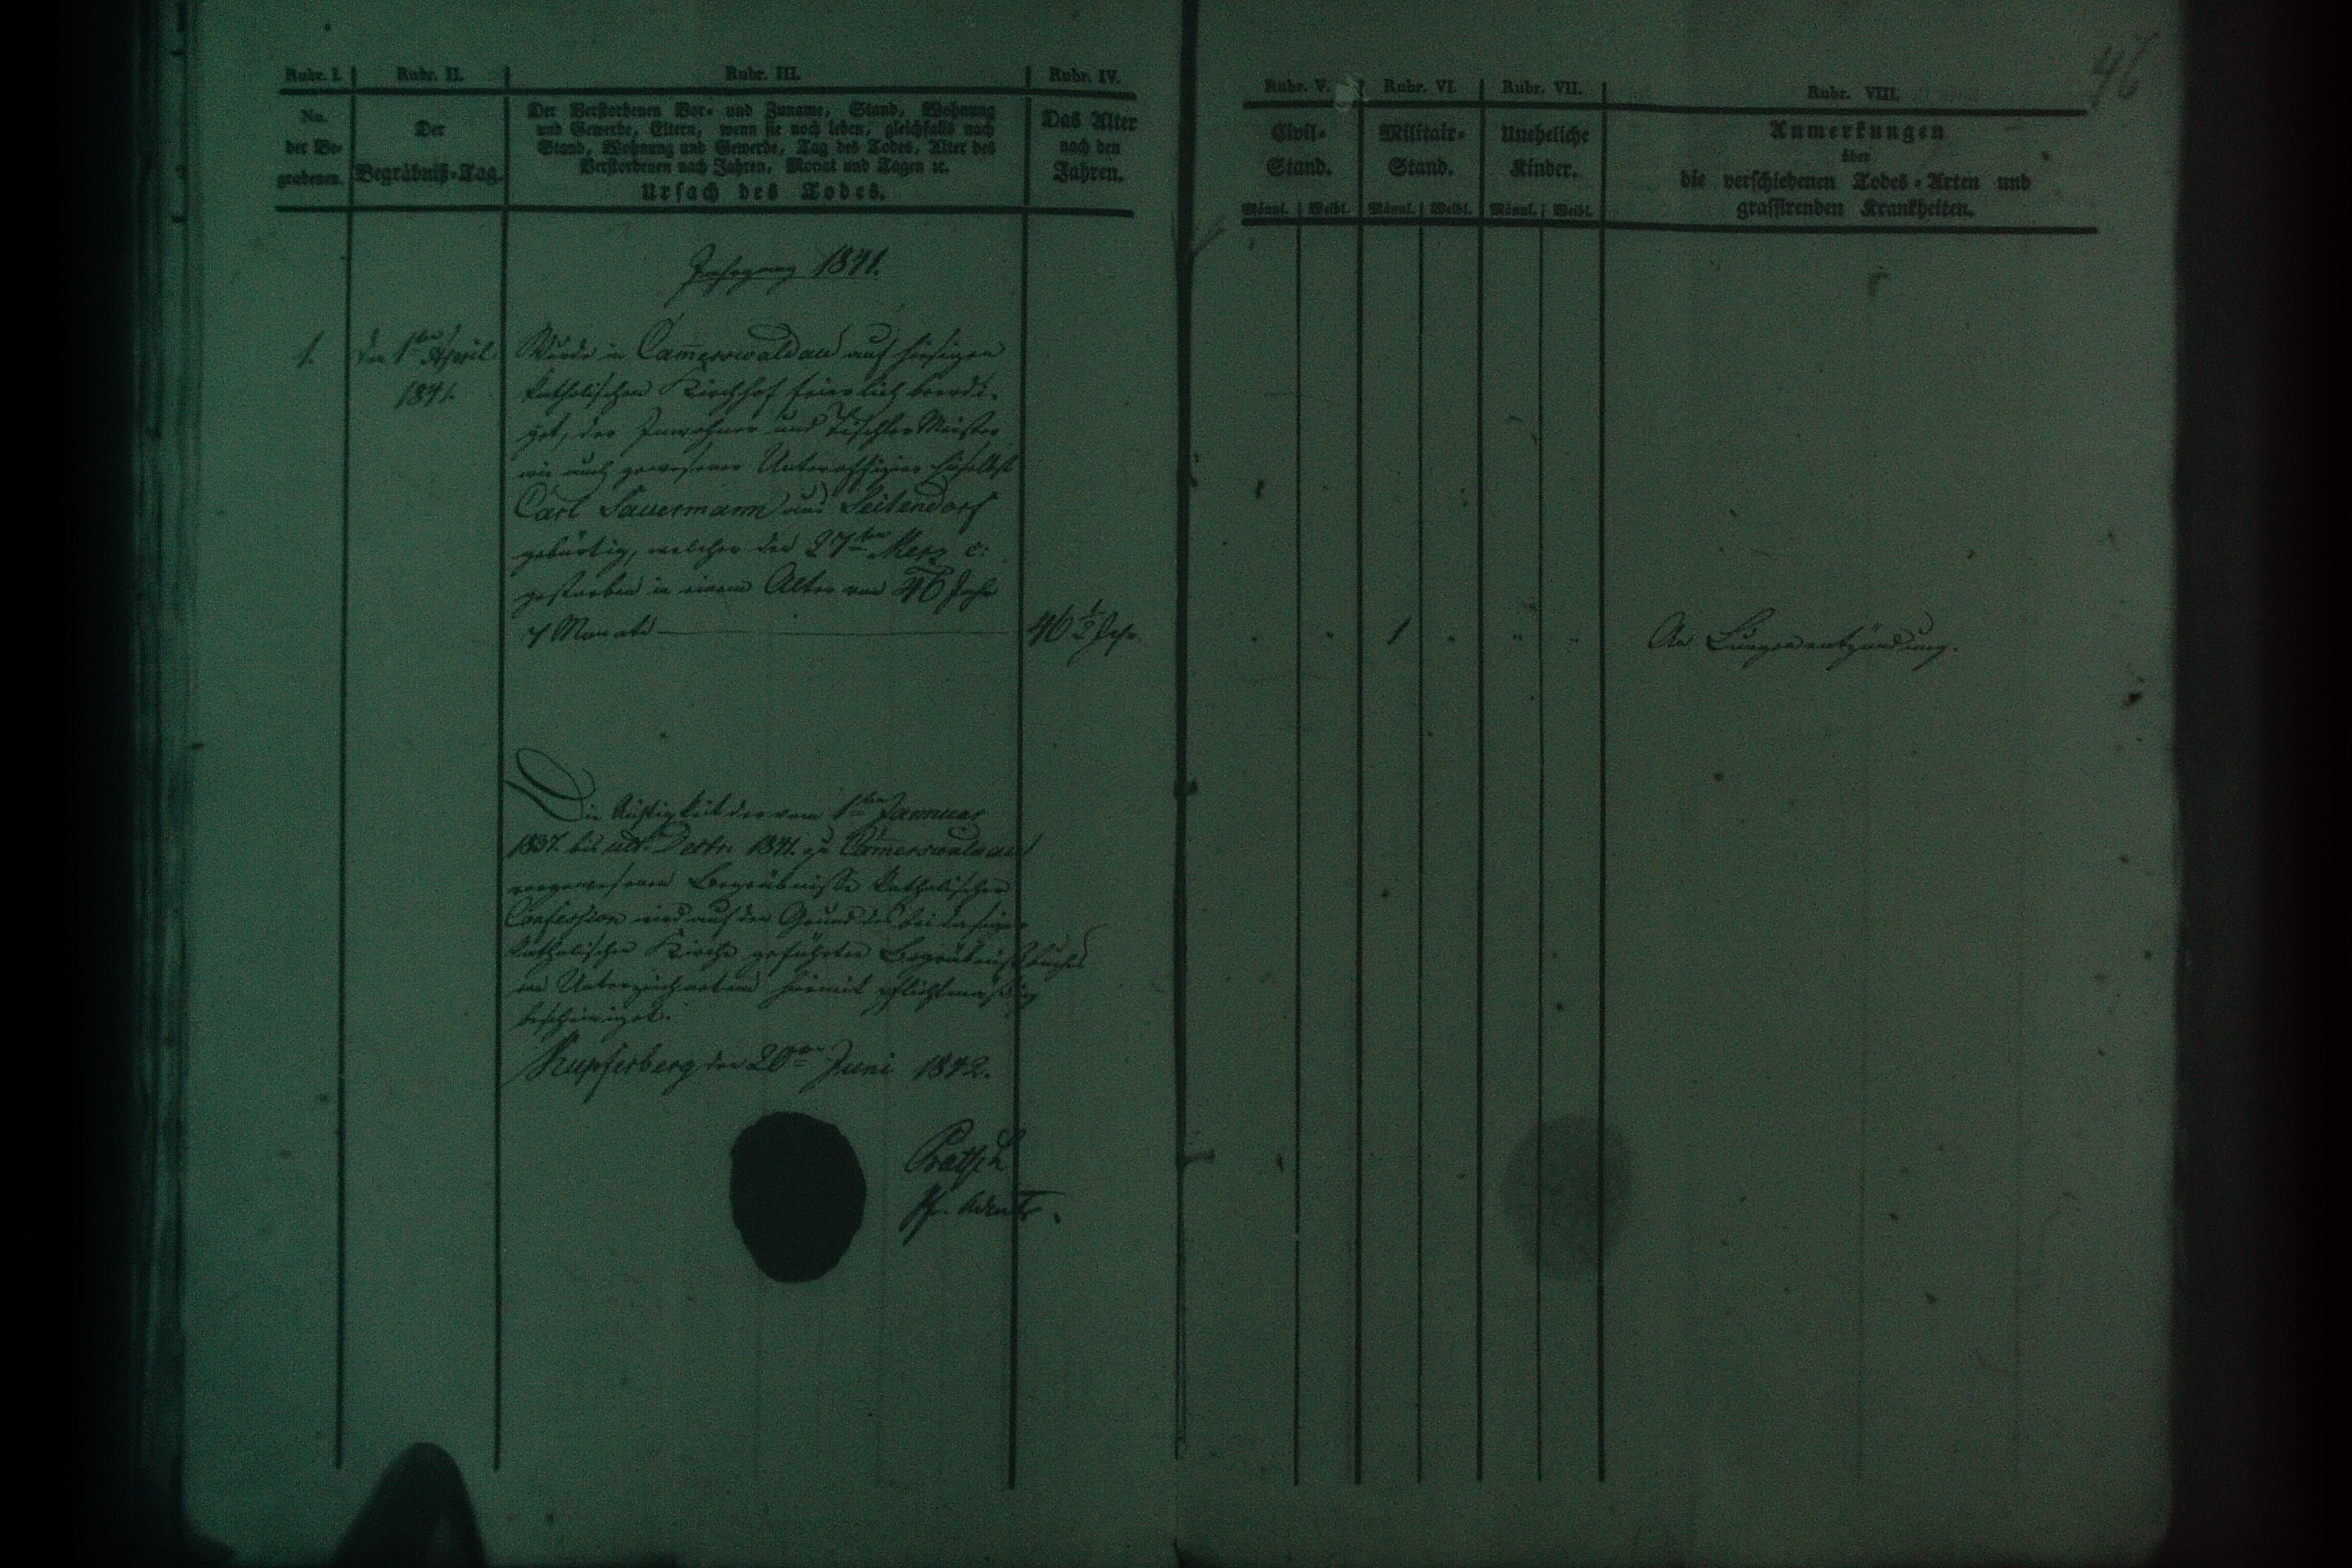 46
Rubr. I.
Rubr. II.
Rubr. III.
Rubr. IV.
No.
der Be-
grabenen.
Der
Begräbniß-Tag.
Der Verstorbenen Vor- und Zuname, Stand, Wohnung
und Gewerbe, Eltern, wenn sie noch leben, gleichfalls nach
Stand, Wohnung und Gewerbe, Tag des Todes, Alter des
Verstorbenen nach Jahren, Monat und Tagen ꝛc.
Ursach des Todes.
Das Alter
nach den
Jahren.
Jahrgang 1841.
1.
den 1ten April
1841.
Wurde in Cam̅erswaldau auf hiesigen
katholischen Kirchhof feierlich beerdi-
get, der Inwohner und Tischler Meister
wie auch gewesener Unteroffizier hieselbst
Carl Sauermann aus Seitendorf
gebürtig, welcher den 27ten Merz c:
gestorben in einem Alter von 46 Jahr
7 Monate
46 1/2 Jahr
Die Richtigkeit der vom 1ten Jannuar
1837. bis ult. Decbr. 1841. zu Cam̅erswaldau
vorgewesenen Begräbnisse katholischer
Confession wird auf den Grund des bei dasiger
katholischen Kirche geführten Begräbnißbuches
von Unterzeichnetem hiermit pflichtmäßig
bescheiniget.
Kupferberg den 20ten Juni 1842.
Pratsch
Pfr. Admtr.
Rubr. V.
Rubr. VI.
Rubr. VII.
Rubr. VIII.
Civil-
Stand.
Militair-
Stand.
Uneheliche
Kinder.
Anmerkungen
über
die verschiedenen Todes-Arten und
grassirenden Krankheiten.
Männl. Weibl. Männl. Weibl. Männl. Weibl.
" " 1 " " "
An Lungenentzündung.